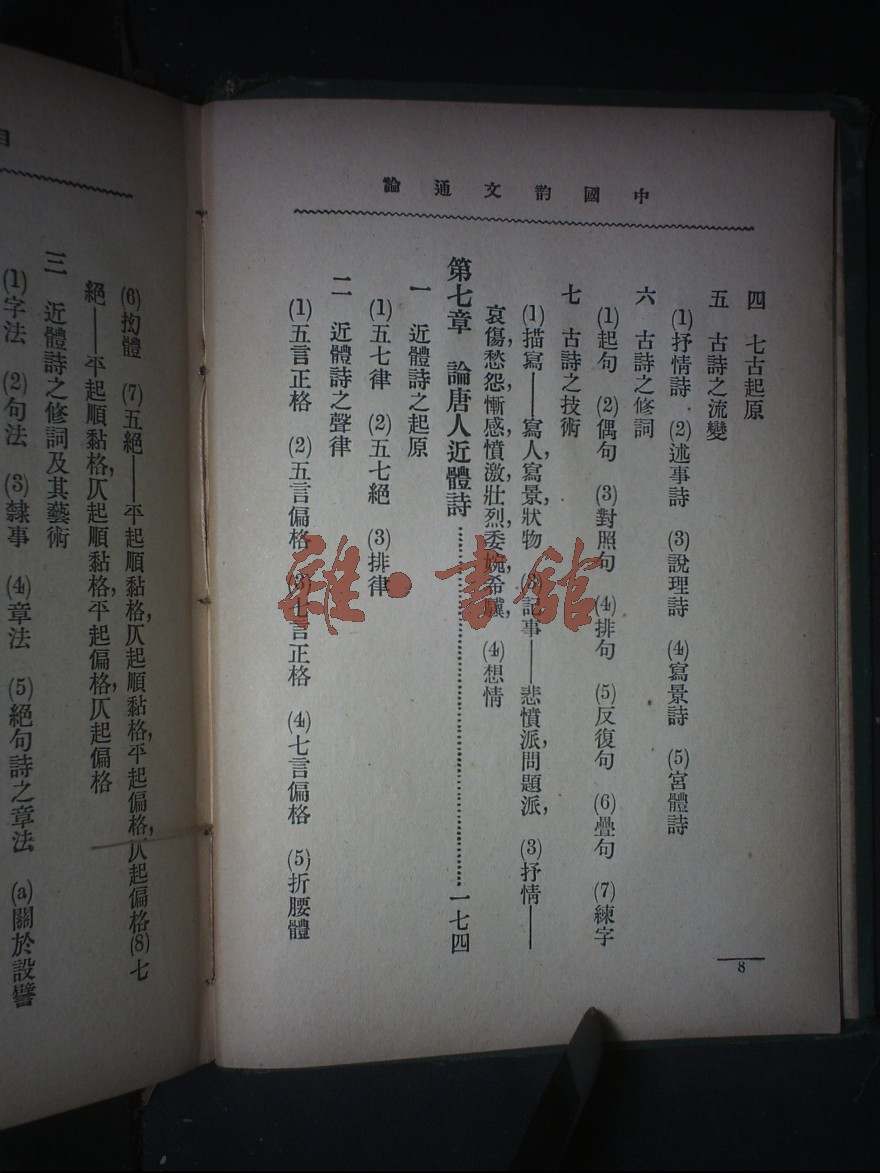 中國韵文通論
四 七古起原
五 古詩之流變
(1)抒情詩 (2)述事詩 (3)說理詩 (4)寫景詩 (5)宮體詩
六 古詩之修詞
(1)起句 (2)偶句 (3)對照句 (4)排句 (5)反復句 (6)疊句 (7)練字
七 古詩之技術
(1)描寫——寫人,寫景,狀物 (2)記事——悲憤派,問題派, (3)抒情——
哀傷,愁怨,慚感,憤激,壯烈,委婉,希驥, (4)想情
第七章 論唐人近體詩……一七四
一 近體詩之起原
(1)五七律 (2)五七絕 (3)排律
二 近體詩之聲律
(1)五言正格 (2)五言偏格 (3)七言正格 (4)七言偏格 (5)折腰體
8
雜·書館
目
(6)拗體 (7)五絕——平起順黏格,仄起順黏格,平起偏格,仄起偏格(8)七
絕——平起順黏格,仄起順黏格,平起偏格,仄起偏格
三 近體詩之修詞及其藝術
(1)字法 (2)句法 (3)隸事 (4)章法 (5)絕句詩之章法 (a)關於設譬